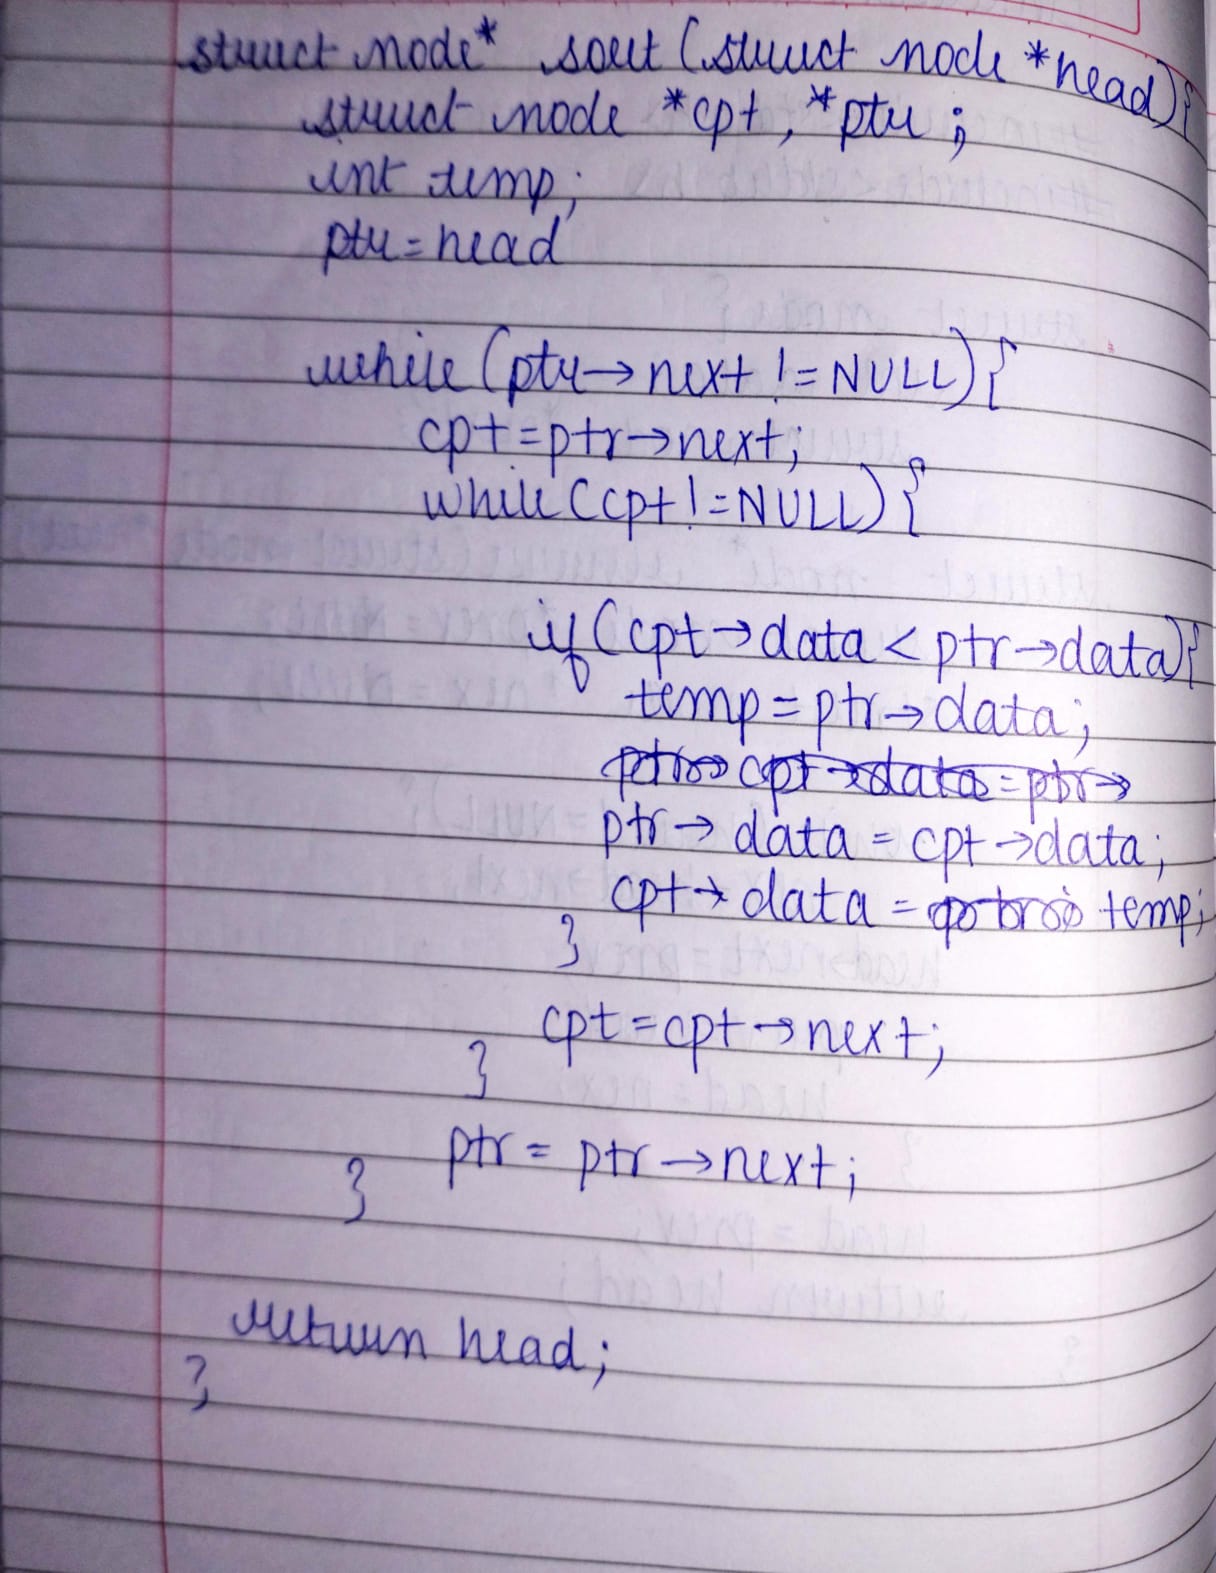 struct node* sort (struct node *head){
struct node *cpt, *ptr;
int temp;
ptr=head
while (ptr→next != NULL){
cpt=ptr→next;
while (cpt!=NULL){
if (cpt→data < ptr→data){
temp=ptr→data;
cpt→data=ptr→
ptr→data=cpt→data;
cpt→data= temp;
}
cpt=cpt→next;
}
ptr=ptr→next;
}
return head;
}